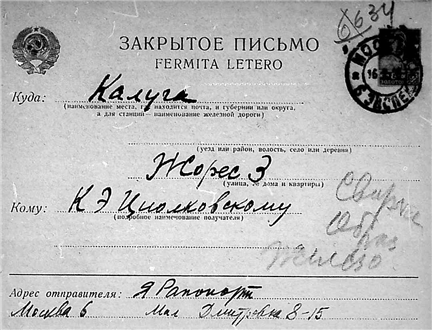 6634
ЗАКРЫТОЕ ПИСЬМО
FERMITA LETERO
МОСКВА
16
6 ЭКСПЕД
Куда: Калуга
(наименование места, где находится почта, и губернии или округа,
а для станций—наименование железной дороги)
(уезд или район, волость, село или деревня)
Жорес 3
(улица, № дома и квартиры)
Кому: К Э Циолковскому
(подробное наименование получателя)
Сварка
Образ
Железо
Адрес отправителя: Я Рапопорт
Москва 6 Мал Дмитровка 8-15